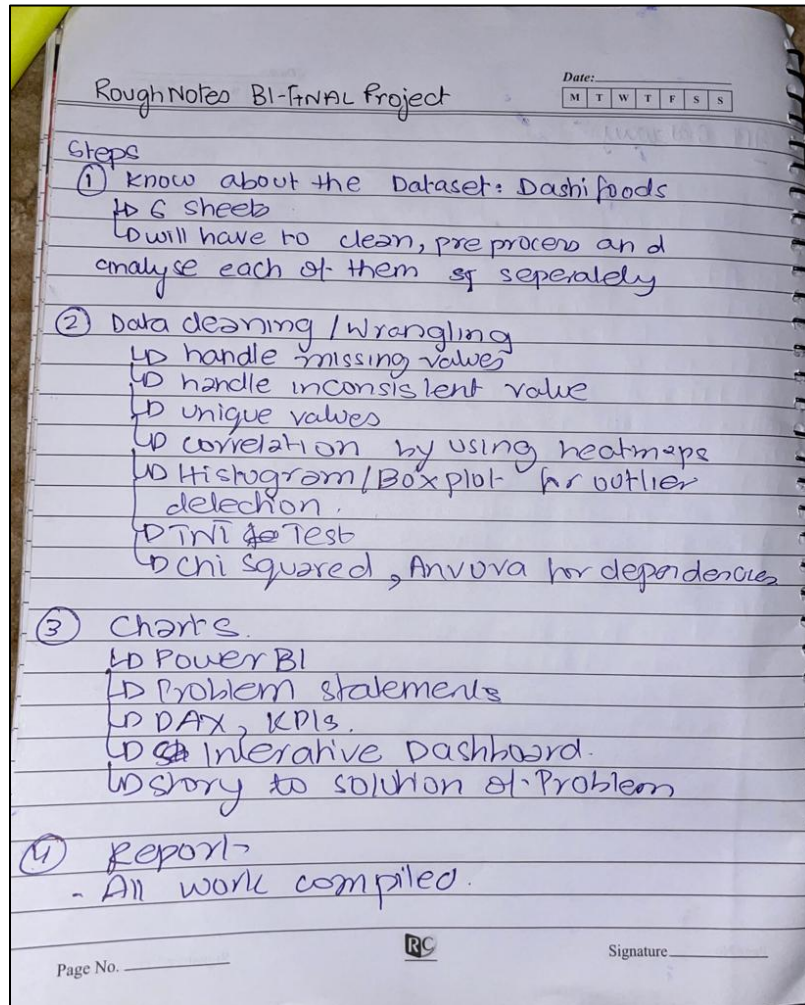 Date:
Rough Notes BI-FINAL Project
M T W T F S S
Steps
① Know about the Dataset: Dashi foods
↳ 6 Sheets
↳ will have to clean, preprocess and
analyse each of them seperately
② Data cleaning / Wrangling
↳ handle missing values
↳ handle inconsistent value
↳ unique values
↳ correlation by using heatmaps
↳ Histogram/Boxplot for outlier
detection.
↳ Test
↳ chi squared, Anvova for dependencies
③ Charts.
↳ Power BI
↳ Problem statements
↳ DAX, KPIs.
↳ Interative Dashboard.
↳ story to solution of Problem
④ Report
- All work compiled.
RC
Page No.
Signature